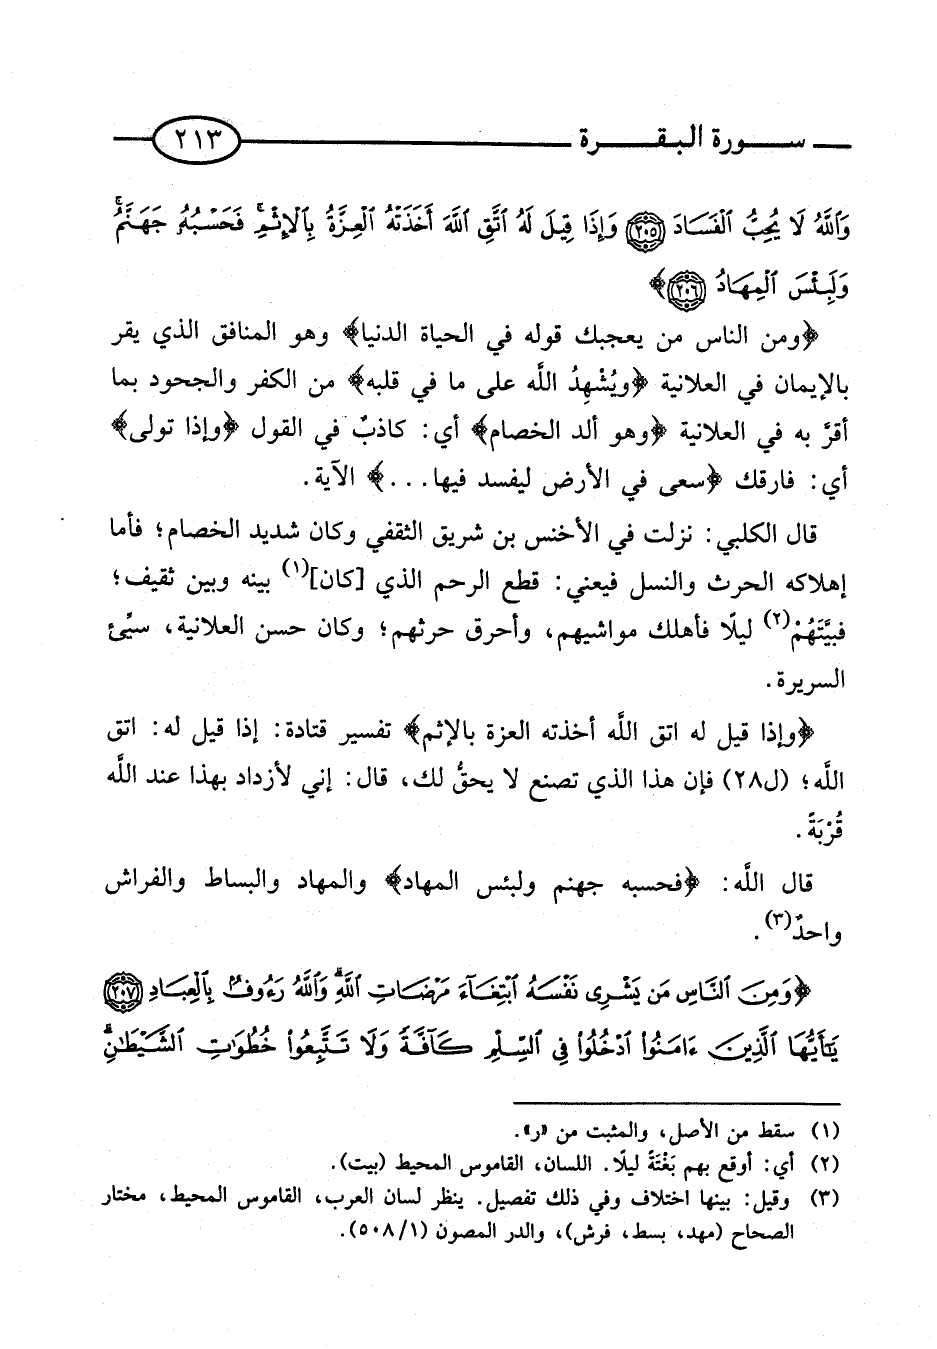 سورة البقرة ٢١٣
وَٱللَّهُ لَا يُحِبُّ ٱلْفَسَادَ ٢٠٥ وَإِذَا قِيلَ لَهُ ٱتَّقِ ٱللَّهَ أَخَذَتْهُ ٱلْعِزَّةُ بِٱلْإِثْمِ ۚ فَحَسْبُهُۥ جَهَنَّمُ ۚ
وَلَبِئْسَ ٱلْمِهَادُ ٢٠٦﴾
﴿ومن الناس من يعجبك قوله في الحياة الدنيا﴾ وهو المنافق الذي يقر
بالإيمان في العلانية ﴿ويُشْهِدُ اللَّه على ما في قلبه﴾ من الكفر والجحود بما
أقرَّ به في العلانية ﴿وهو ألد الخصام﴾ أي: كاذبٌ في القول ﴿وإذا تولى﴾
أي: فارقك ﴿سعى في الأرض ليفسد فيها...﴾ الآية.
قال الكلبي: نزلت في الأخنس بن شريق الثقفي وكان شديد الخصام؛ فأما
إهلاكه الحرث والنسل فيعني: قطع الرحم الذي [كان](١) بينه وبين ثقيف؛
فبيَّتَهُمْ(٢) ليلًا فأهلك مواشيهم، وأحرق حرثهم؛ وكان حسن العلانية، سيِّئ
السريرة.
﴿وإذا قيل له اتق اللَّه أخذته العزة بالإثم﴾ تفسير قتادة: إذا قيل له: اتق
اللَّه؛ (ل٢٨) فإن هذا الذي تصنع لا يحقُّ لك، قال: إني لأزداد بهذا عند اللَّه
قُرْبَةً.
قال اللَّه: ﴿فحسبه جهنم ولبئس المهاد﴾ والمهاد والبساط والفراش
واحدٌ(٣).
﴿وَمِنَ ٱلنَّاسِ مَن يَشْرِى نَفْسَهُ ٱبْتِغَآءَ مَرْضَاتِ ٱللَّهِ ۗ وَٱللَّهُ رَءُوفٌۢ بِٱلْعِبَادِ ٢٠٧
يَٰٓأَيُّهَا ٱلَّذِينَ ءَامَنُوا۟ ٱدْخُلُوا۟ فِى ٱلسِّلْمِ كَآفَّةً وَلَا تَتَّبِعُوا۟ خُطُوَٰتِ ٱلشَّيْطَٰنِ ۚ
(١) سقط من الأصل، والمثبت من «ر».
(٢) أي: أوقع بهم بَغْتَةً ليلًا. اللسان، القاموس المحيط (بيت).
(٣) وقيل: بينها اختلاف وفي ذلك تفصيل. ينظر لسان العرب، القاموس المحيط، مختار
الصحاح (مهد، بسط، فرش)، والدر المصون (٥٠٨/١).